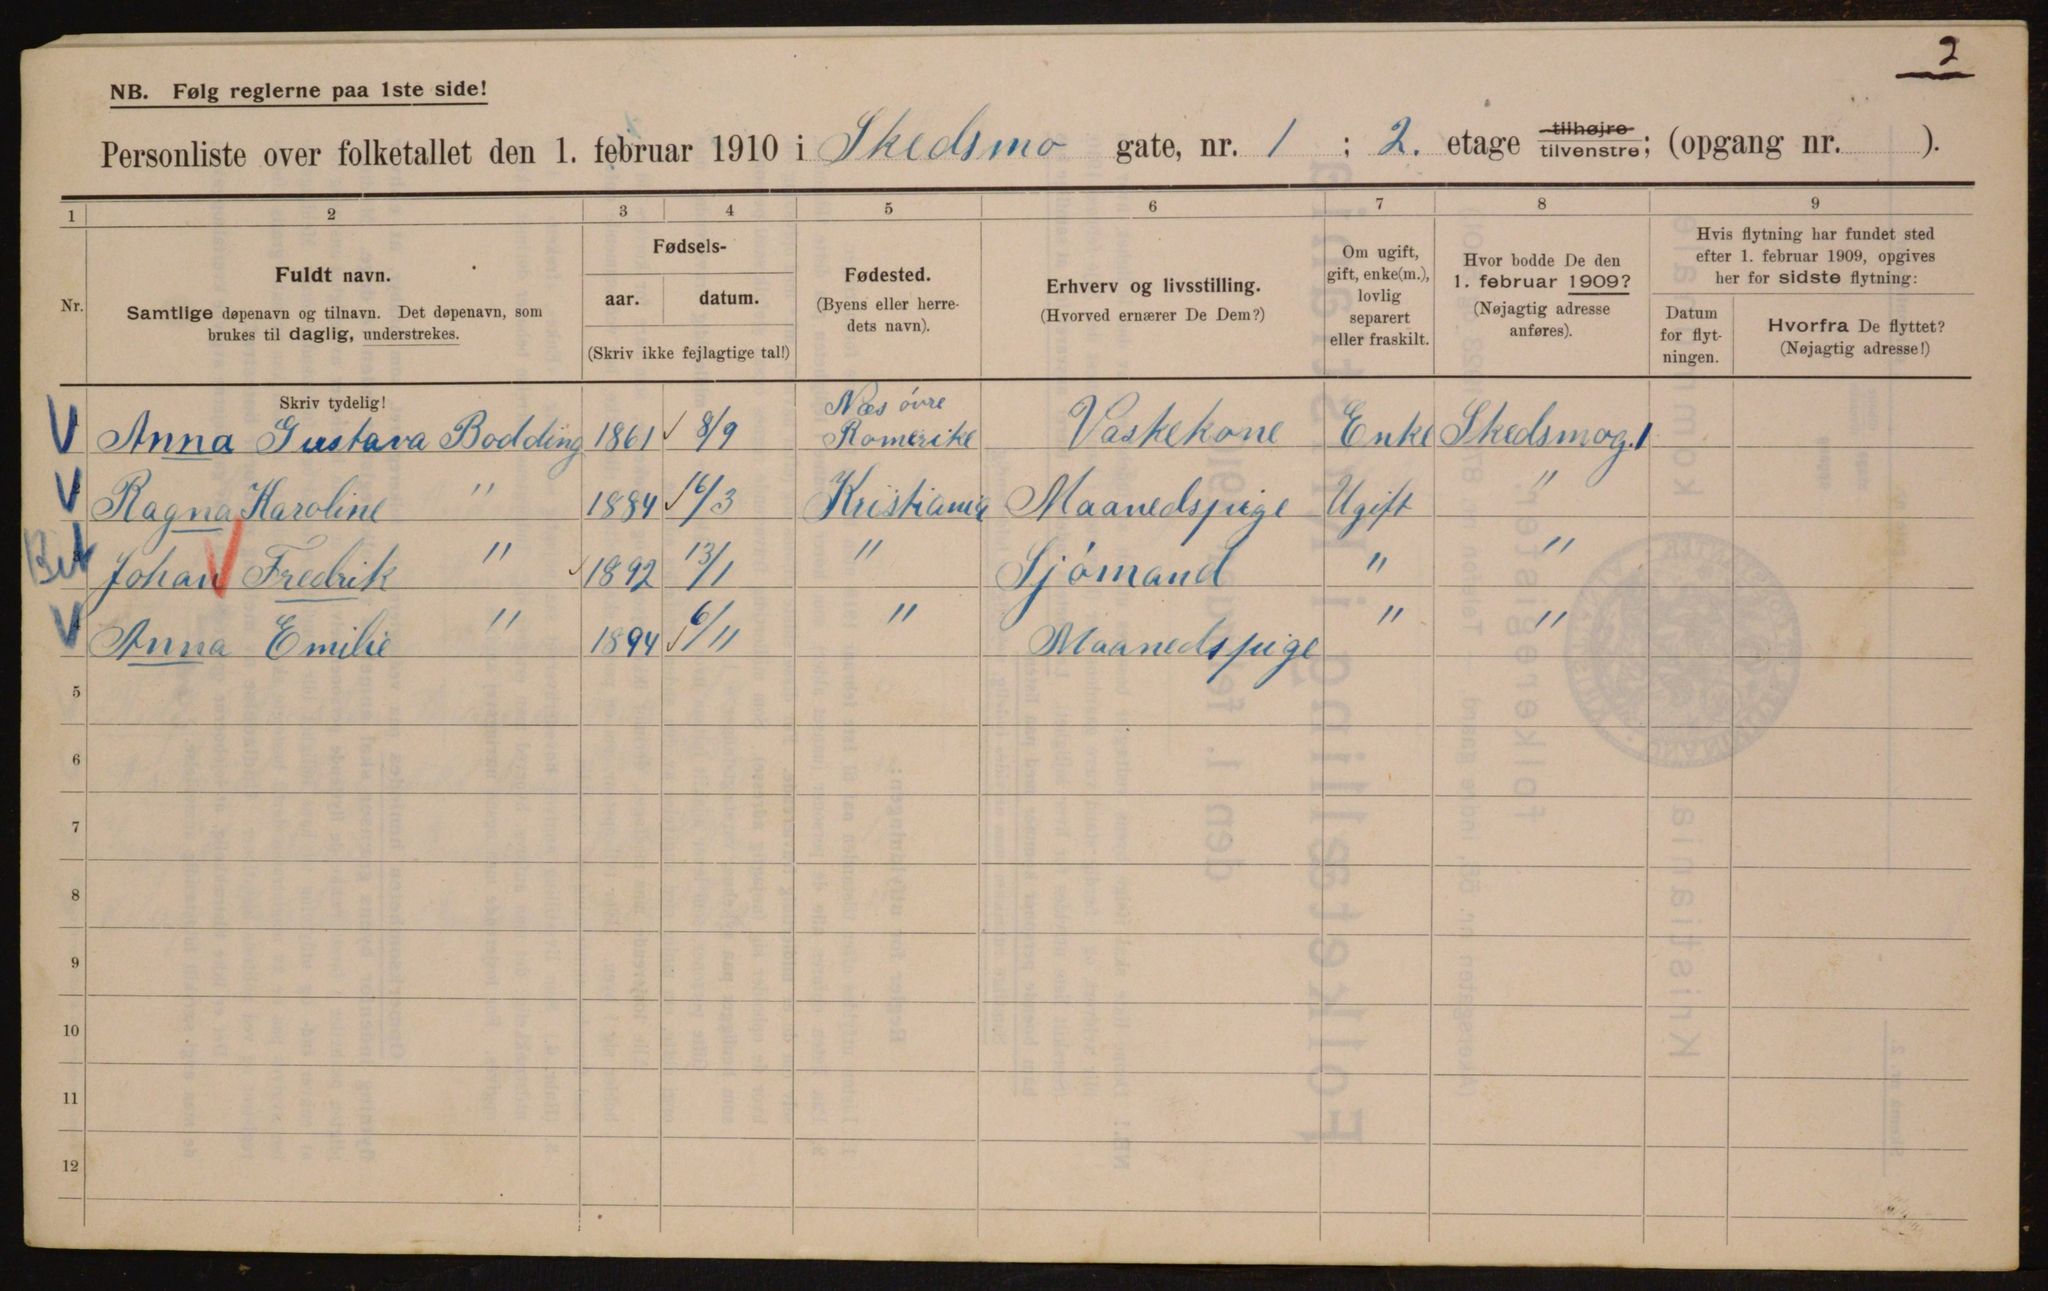 2
NB. Følg reglerne paa 1ste side!
Personliste over folketallet den 1. februar 1910 i Skedsmo gate, nr. 1 ; 2. etage tilhøjre tilvenstre; (opgang nr. ).
1 2 3 4 5 6 7 8 9
Nr.
Fuldt navn.
Samtlige døpenavn og tilnavn. Det døpenavn, som
brukes til daglig, understrekes.
Fødsels-
aar. datum.
(Skriv ikke fejlagtige tal!)
Fødested.
(Byens eller herre-
dets navn).
Erhverv og livsstilling.
(Hvorved ernærer De Dem?)
Om ugift,
gift, enke(m.),
lovlig
separert
eller fraskilt.
Hvor bodde De den
1. februar 1909?
(Nøjagtig adresse
anføres).
Hvis flytning har fundet sted
efter 1. februar 1909, opgives
her for sidste flytning:
Datum
for flyt-
ningen.
Hvorfra De flyttet?
(Nøjagtig adresse!)
Skriv tydelig!
Anna Gustava Bodding 1861 8/9 Næs óvre Romerike Vaskekone Enke Skedsmog. 1
Ragna Karoline " 1884 16/3 Kristiania Maanedspige Ugift "
3 Johan Fredrik " 1892 13/1 " Sjómand " "
4 Anna Emilie " 1894 6/11 " Maanedspige " "
5
6
7
8
9
10
11
12